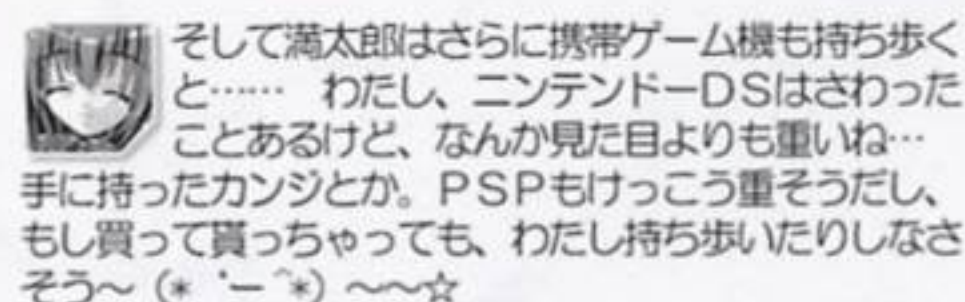 そして満太郎はさらに携帯ゲーム機も持ち歩く
と…… わたし、ニンテンドーDSはさわった
ことあるけど、なんか見た目よりも重いね…
手に持ったカンジとか。PSPもけっこう重そうだし、
もし買って貰っちゃっても、わたし持ち歩いたりしなさ
そう～ (* ˙ー ̂*) ～～☆